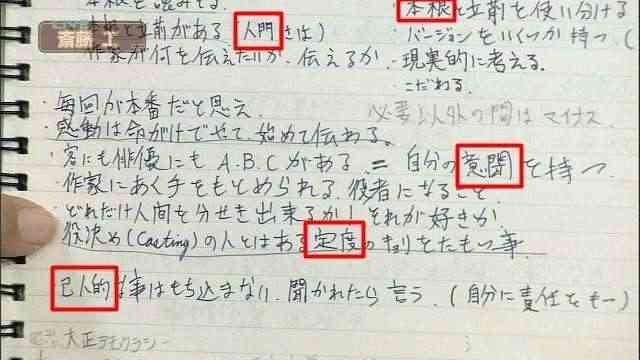 本根を読みとる.
本根と立前がある(人門さは)
作家が何を伝えたいか、伝えるか.
本根と立前を使い分ける
バージョンをいくつか持つ.(
現実的に考える.
こだわる.
斎藤 工
・毎回が本番だと思え.
必要以外の間はマイナス.
・感動は命がけでやって、始めて伝わる。
・客にも俳優にも A.B.C がある. = 自分の意聞を持つ.
・作家にあく手をもとめられる.役者になること.
・どれだけ人間を分せき出来るか、それが好きか.
・役決め(Casting)の人とはある定度のキョリをたもつ事.
己人的な事はもち込まない.聞かれたら言う.(自分に責任をもつ)
大正デモクラシー